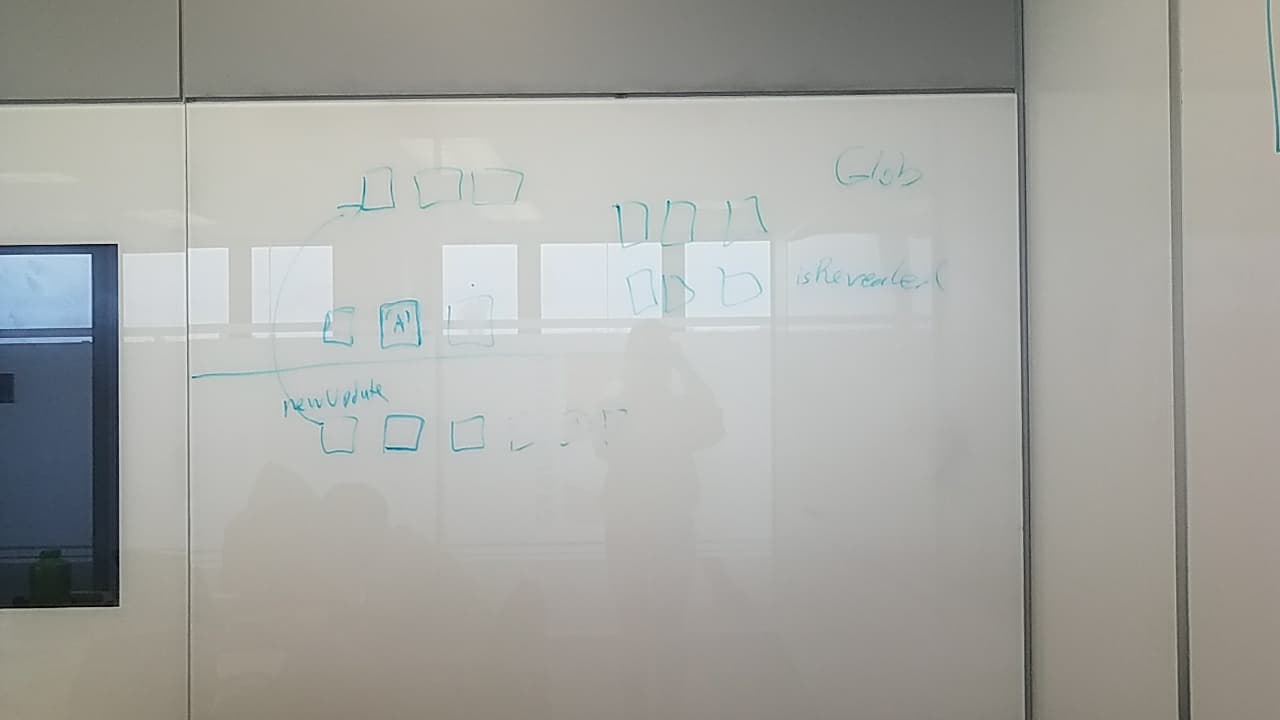 Glob
isRevealed
'A'
newUpdate